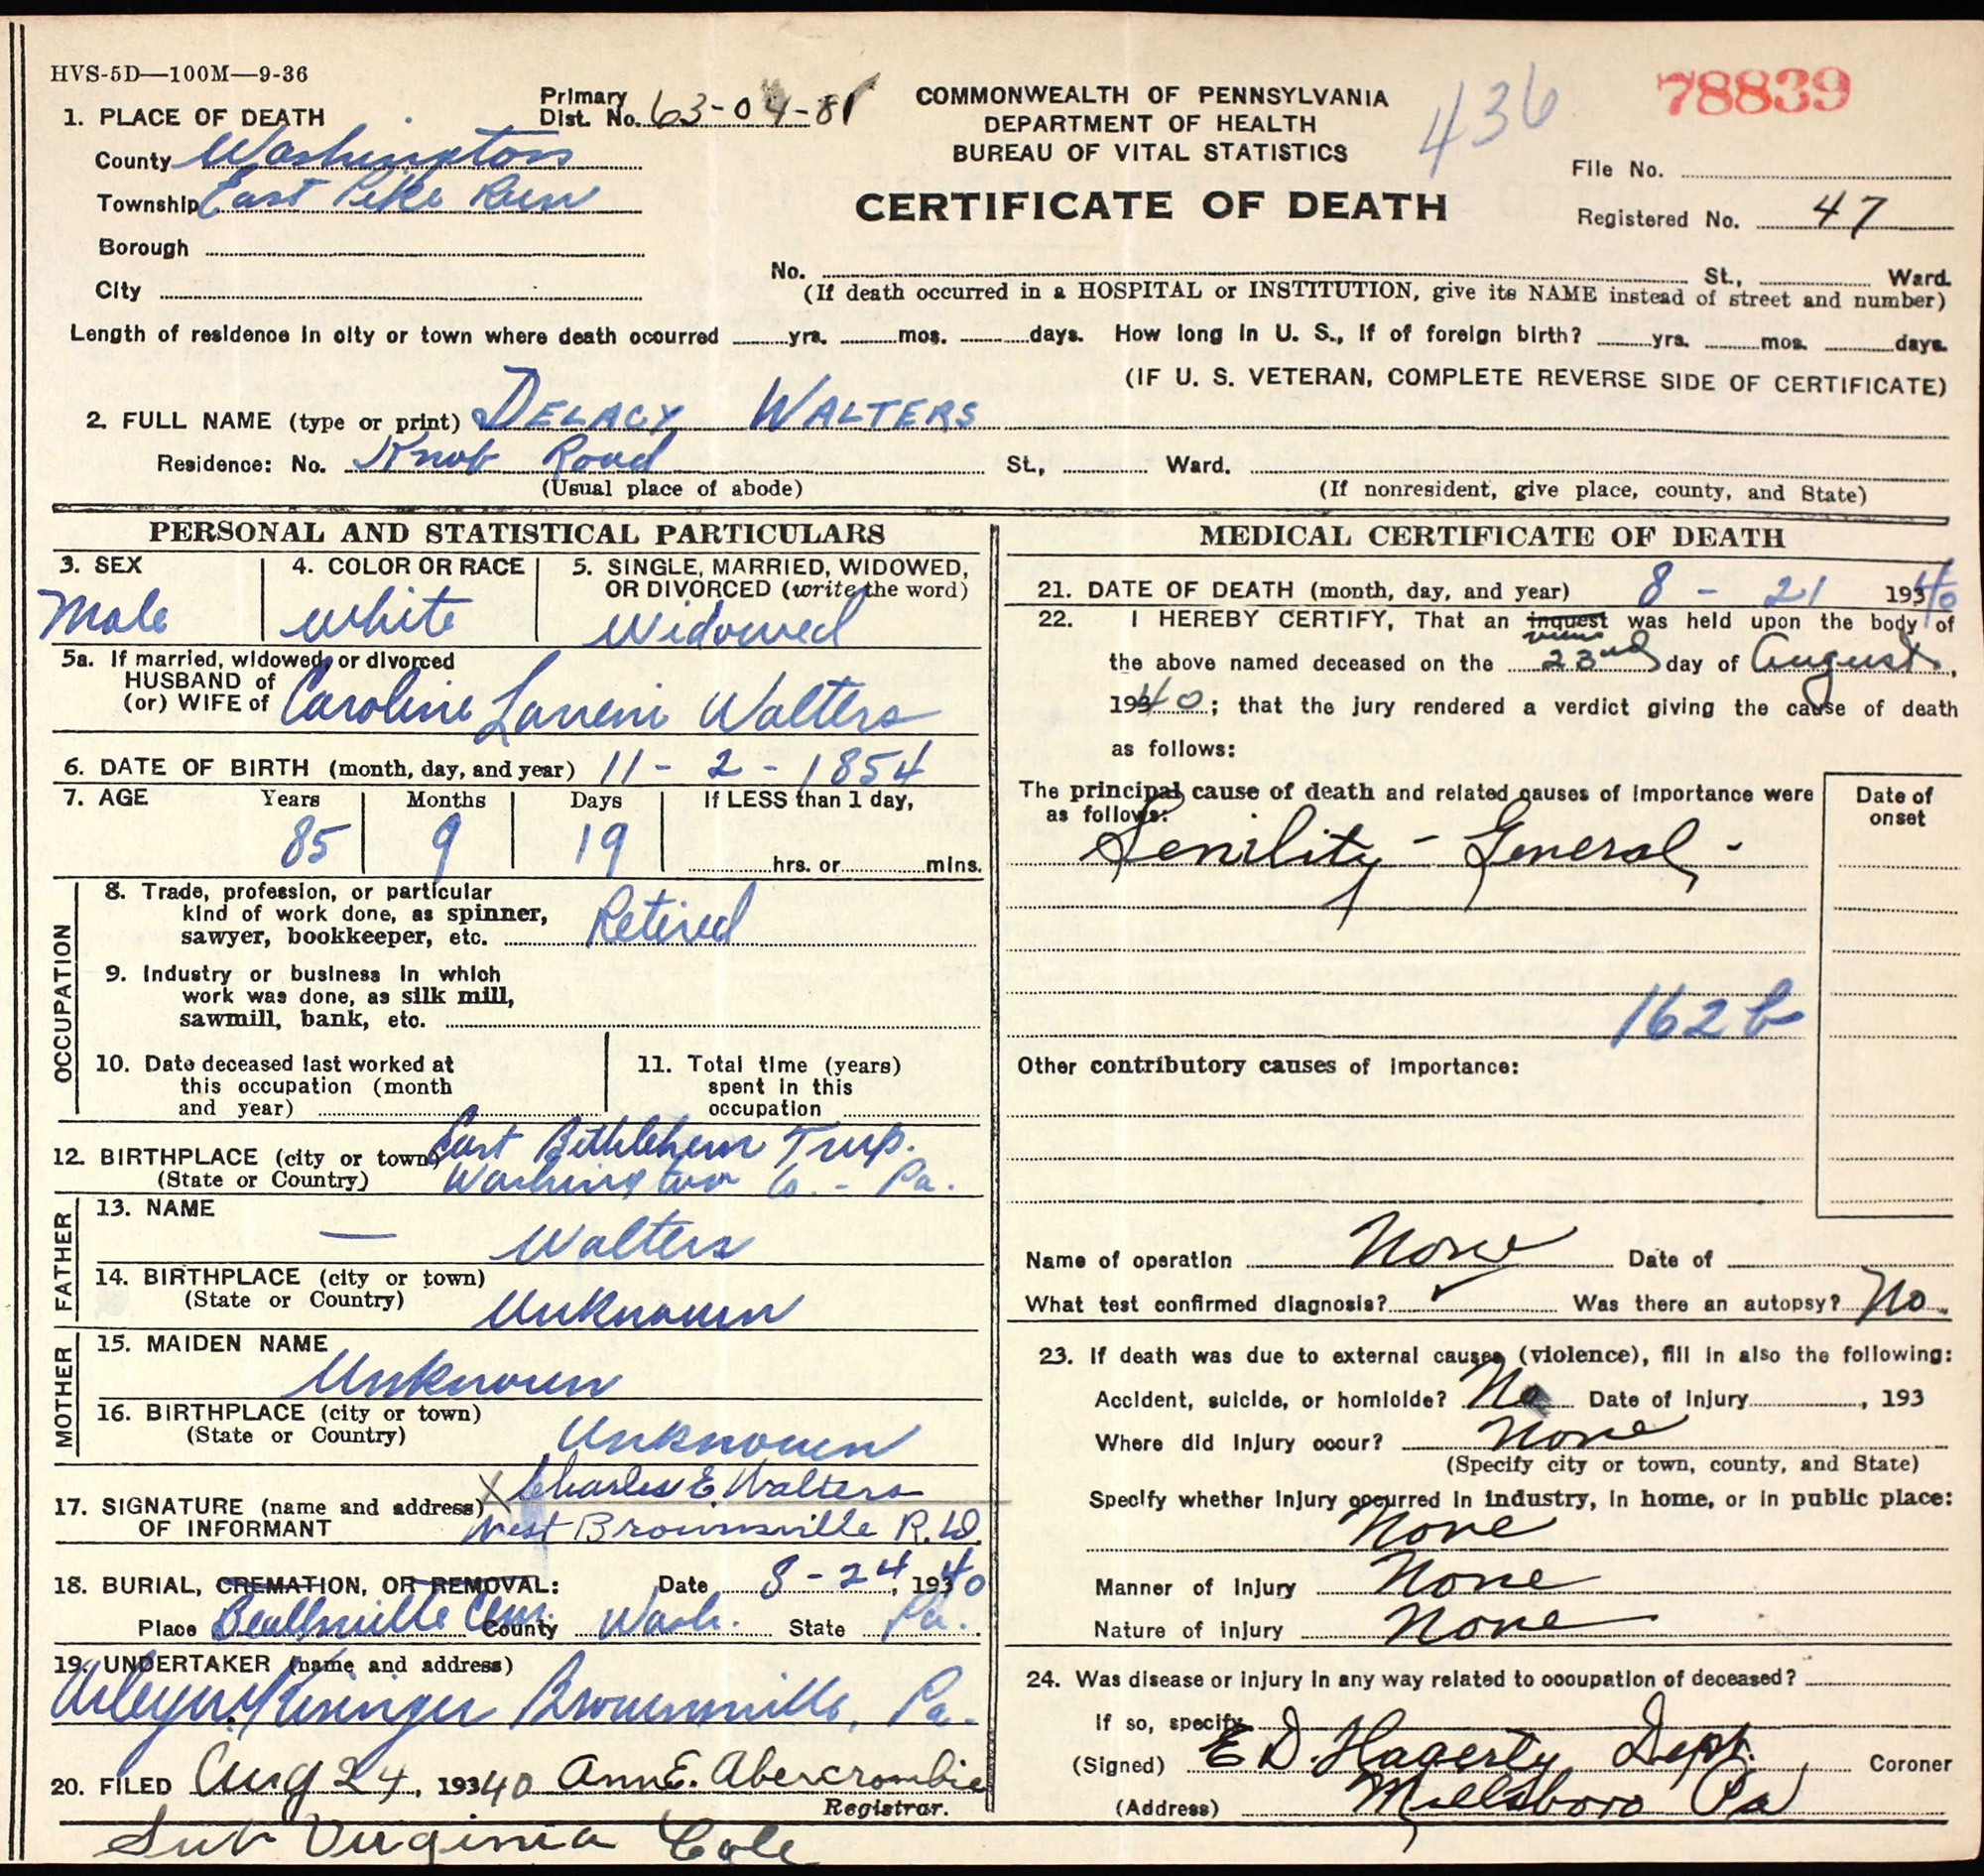 HVS-5D—100M—9-36
78839
436
COMMONWEALTH OF PENNSYLVANIA
DEPARTMENT OF HEALTH
BUREAU OF VITAL STATISTICS
CERTIFICATE OF DEATH
Primary
Dist. No. 63-04-81
File No.
Registered No. 47
1. PLACE OF DEATH
County Washington
Township East Pike Run
Borough
City
No. St., Ward.
(If death occurred in a HOSPITAL or INSTITUTION, give its NAME instead of street and number)
Length of residence in city or town where death occurred yrs. mos. days. How long in U. S., if of foreign birth? yrs. mos. days.
(IF U. S. VETERAN, COMPLETE REVERSE SIDE OF CERTIFICATE)
2. FULL NAME (type or print) DELACY WALTERS
Residence: No. Knob Road St., Ward.
(Usual place of abode) (If nonresident, give place, county, and State)
PERSONAL AND STATISTICAL PARTICULARS
3. SEX
Male
4. COLOR OR RACE
White
5. SINGLE, MARRIED, WIDOWED,
OR DIVORCED (write the word)
Widowed
5a. If married, widowed, or divorced
HUSBAND of
(or) WIFE of Caroline Walters
6. DATE OF BIRTH (month, day, and year) 11 - 2 - 1854
7. AGE Years Months Days If LESS than 1 day,
85 9 19 hrs. or mins.
OCCUPATION
8. Trade, profession, or particular
kind of work done, as spinner,
sawyer, bookkeeper, etc. Retired
9. Industry or business in which
work was done, as silk mill,
sawmill, bank, etc.
10. Date deceased last worked at
this occupation (month
and year)
11. Total time (years)
spent in this
occupation
12. BIRTHPLACE (city or town) East Bethlehem Twp.
(State or Country) Washington Co. - Pa.
FATHER
13. NAME
— Walters
14. BIRTHPLACE (city or town)
(State or Country) Unknown
MOTHER
15. MAIDEN NAME
Unknown
16. BIRTHPLACE (city or town)
(State or Country) Unknown
17. SIGNATURE (name and address) X Charles E. Walters
OF INFORMANT West Brownsville R.D.
18. BURIAL, CREMATION, OR REMOVAL: Date 8 - 24, 1940
Place Beallsville Cem. County Wash. State Pa.
19. UNDERTAKER (name and address)
Brownsville, Pa.
20. FILED Aug 24, 1940 Ann E. Abercrombie
Registrar.
Sub Virginia Cole
MEDICAL CERTIFICATE OF DEATH
21. DATE OF DEATH (month, day, and year) 8 - 21 1940
22. I HEREBY CERTIFY, That an inquest was held upon the body of
view
the above named deceased on the 23rd day of August,
1940; that the jury rendered a verdict giving the cause of death
as follows:
The principal cause of death and related causes of importance were
as follows:
Date of
onset
Senility - General -
162 b
Other contributory causes of importance:
Name of operation None Date of
What test confirmed diagnosis? ✓ Was there an autopsy? No.
23. If death was due to external causes (violence), fill in also the following:
Accident, suicide, or homicide? No Date of Injury , 193
Where did Injury occur? None
(Specify city or town, county, and State)
Specify whether Injury occurred in industry, in home, or in public place:
None
Manner of Injury None
Nature of Injury None
24. Was disease or injury in any way related to occupation of deceased?
If so, specify
(Signed) E D. Hagerty Dept. Coroner
(Address) Millsboro Pa